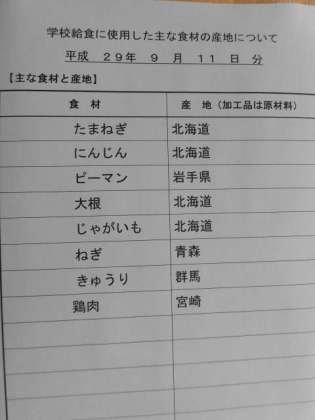 学校給食に使用した主な食材の産地について
平成 29年 9 月 11 日 分
【主な食材と産地】
食 材 産 地(加工品は原材料)
たまねぎ 北海道
にんじん 北海道
ピーマン 岩手県
大根 北海道
じゃがいも 北海道
ねぎ 青森
きゅうり 群馬
鶏肉 宮崎